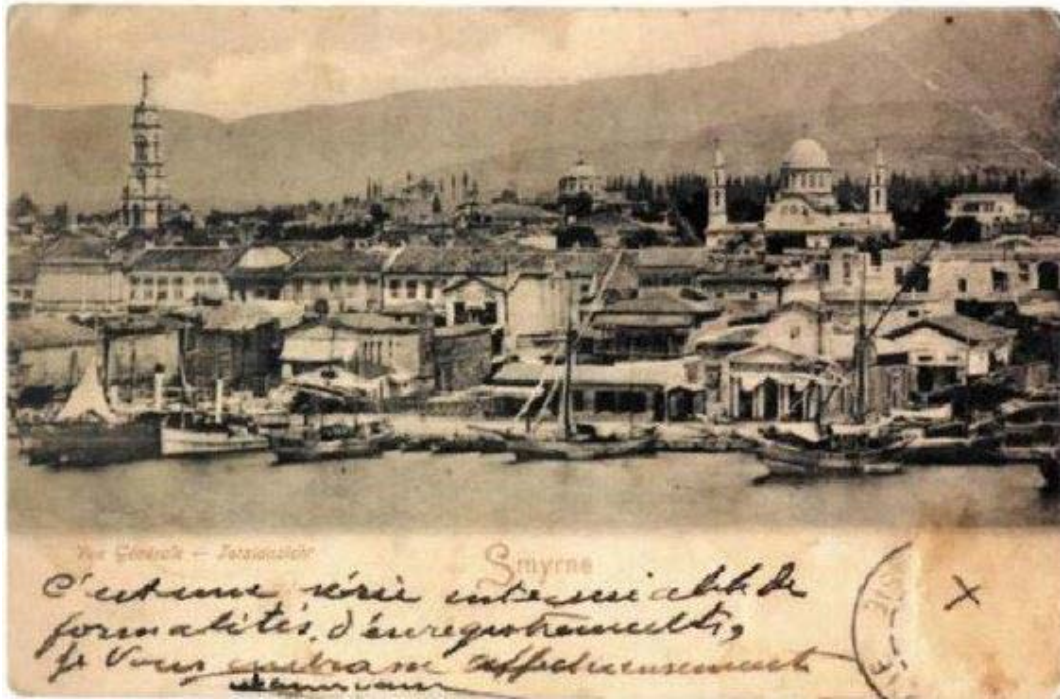 Vue Générale – Totalansicht
Smyrne
C'est une série interminable de
formalités, d'enregistrements,
je vous embrasse affectueusement